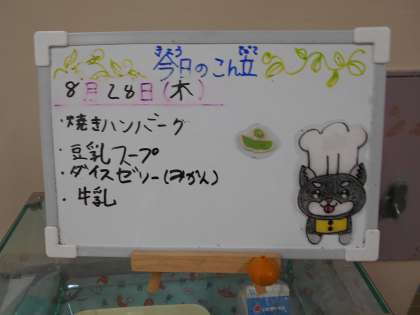 今日のこん立
きょう だて
8月28日(木)
・焼きハンバーグ
・豆乳スープ
・ダイスゼリー(みかん)
・牛乳